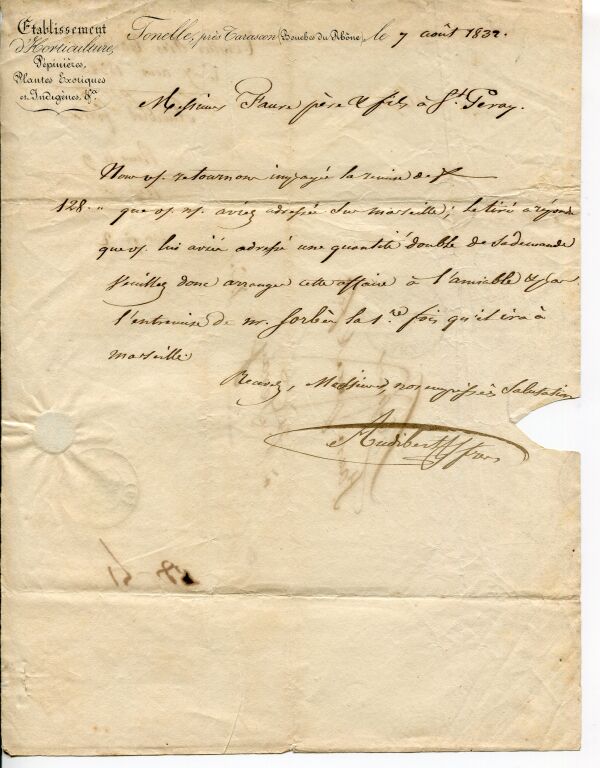 Établissement
d'Horticulture,
Pépinières,
Plantes Exotiques
et Indigènes, &ca.
Tonelle, près Tarascon (Bouches du Rhône), le 7 août 1832.
Messieurs Faure père & fils à St. Peray.
Nous vs. retournons impayé la remise de f
128. " que vs. ns. aviez adressée sur marseille; le tiré a répondu
que vs. lui aviez adressé une quantité double de sa demande
Veuillez donc arranger cette affaire à l'amiable & par
l'entremise de mr. Sorbière la 1.re fois qu'il ira à
marseille
Recevez, Messieurs, nos empressées Salutations
Audibert ffrères